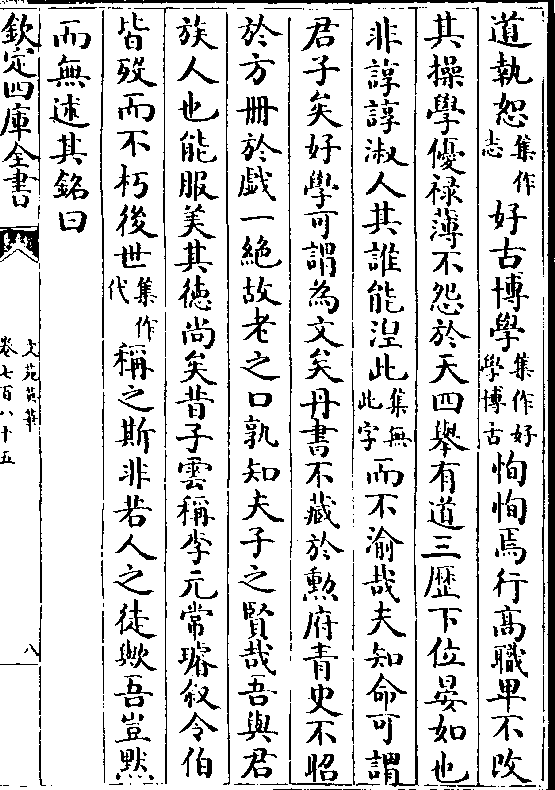 道執恕集作志好古博學集作好學博古恂恂焉行高職卑不改
其操學優禄薄不怨於天四舉有道三歴下位晏如也
非諄諄淑人其誰能湼此集無此字而不渝哉夫知命可謂
君子矣好學可謂為文矣丹書不藏於勲府青史不昭
於方冊於戯一絶故老之口孰知夫子之賢哉吾與君
族人也能服美其徳尚矣昔子雲稱李元常璩叙令伯
皆歿而不朽後世集作代稱之斯非若人之徒歟吾豈黙
而無述其銘曰
欽定四庫全書
文苑英華
卷七百八十五
八